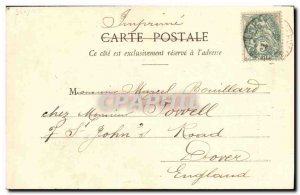 Imprimé
CARTE POSTALE
Ce côté est exclusivement réservé à l'adresse
Monsieur Marcel Bouillard
chez Monsieur Powell
9 St John's Road
Dover
England